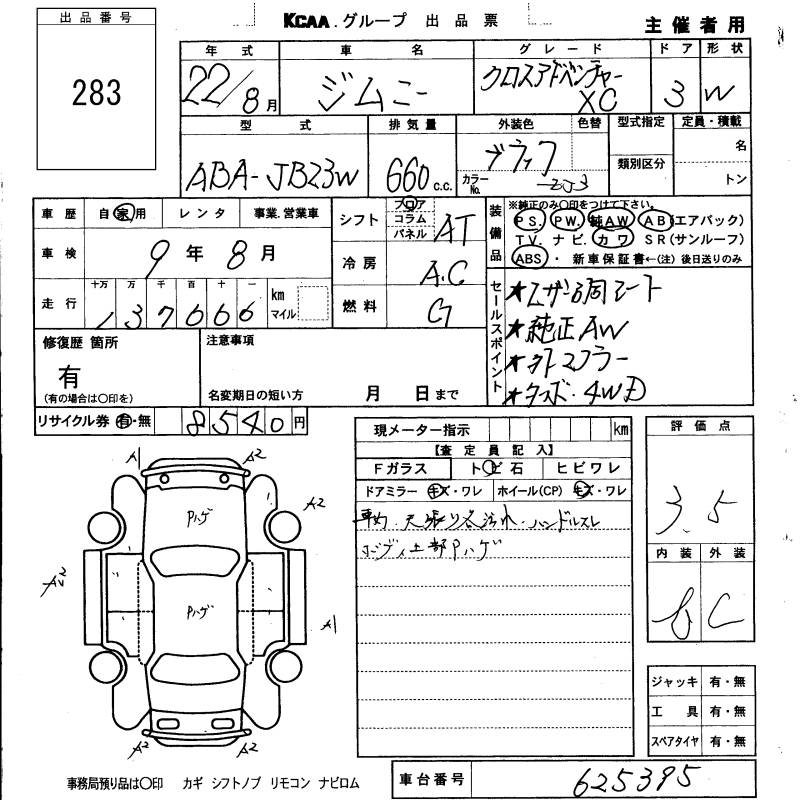 出品番号
283
KCAA.グループ 出品票
主催者用
年式 車名 グレード ドア 形状
22/8月 ジムニー クロスアドベンチャー XC 3 W
型式 排気量 外装色 色替 型式指定 定員・積載
ABA-JB23W 660 c.c. ブラック 類別区分 名
カラーNo. ZJ3 トン
車歴 自家用 レンタ 事業.営業車
車検 9年8月
走行 十万 万 千 百 十 一 km マイル
137666
シフト フロア コラム パネル AT
冷房 A.C
燃料 G
装備品 ※純正のみ〇印をつけて下さい。
P S. P W. 純A W A B(エアバック)
T V. ナビ. カワ S R(サンルーフ)
ABS・ 新車保証書←(注) 後日送りのみ
セールスポイント
★レザー調シート
★純正AW
★外マフラー
★ターボ・4WD
修復歴 箇所
有
(有の場合は〇印を)
注意事項
名変期日の短い方 月 日まで
リサイクル券 有・無 8540円
現メーター指示 km
【査定員記入】
Fガラス トビ石 ヒビワレ
ドアミラー キズ・ワレ ホイール(CP) キズ・ワレ
車内 天張り各汚れ.ハンドルスレ
ボディ上部Pハゲ
評価点
3.5
内装 外装
C
A1 A2
Pハゲ
A2
A2
Pハゲ
A1
A2 A2
ジャッキ 有・無
工具 有・無
スペアタイヤ 有・無
事務局預り品は〇印 カギ シフトノブ リモコン ナビロム
車台番号 625395